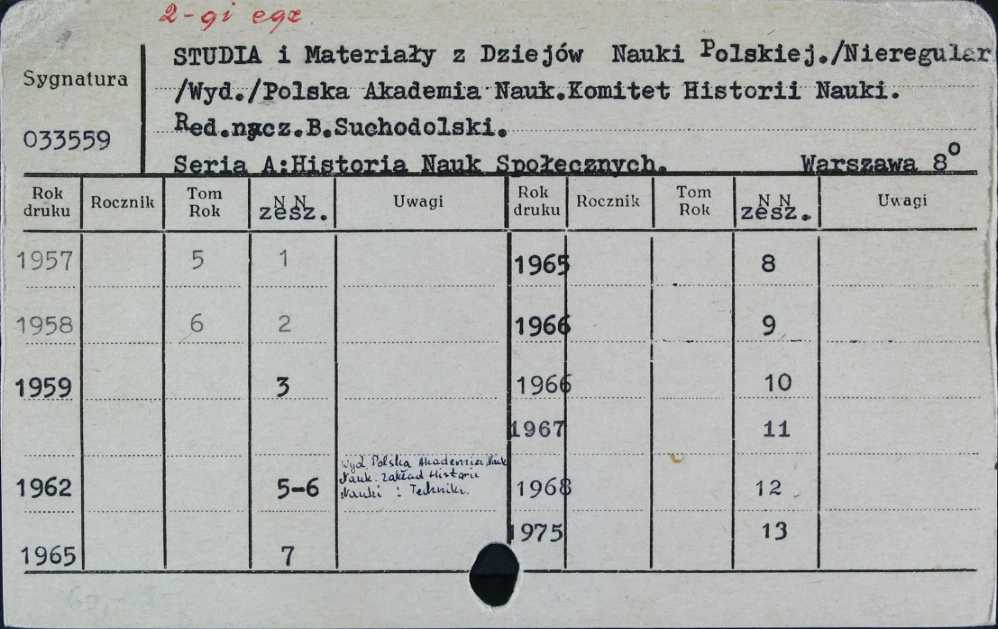 2-gi egz
STUDIA i Materiały z Dziejów Nauki Polskiej./Nieregular
Sygnatura
/Wyd./Polska Akademia Nauk.Komitet Historii Nauki.
033559
Red.nacz.B.Suchodolski.
Seria A:Historia Nauk Społecznych. Warszawa 8°
Rok druku Rocznik Tom Rok N N zesz. Uwagi Rok druku Rocznik Tom Rok N N zesz. Uwagi
1957 5 1 1965 8
1958 6 2 1966 9
1959 3 1966 10
1967 11
Wyd. Polska Akademia Nauk
Nauk. Zakład Historii
1962 5-6 Nauki i Techniki. 1968 12
1975 13
1965 7